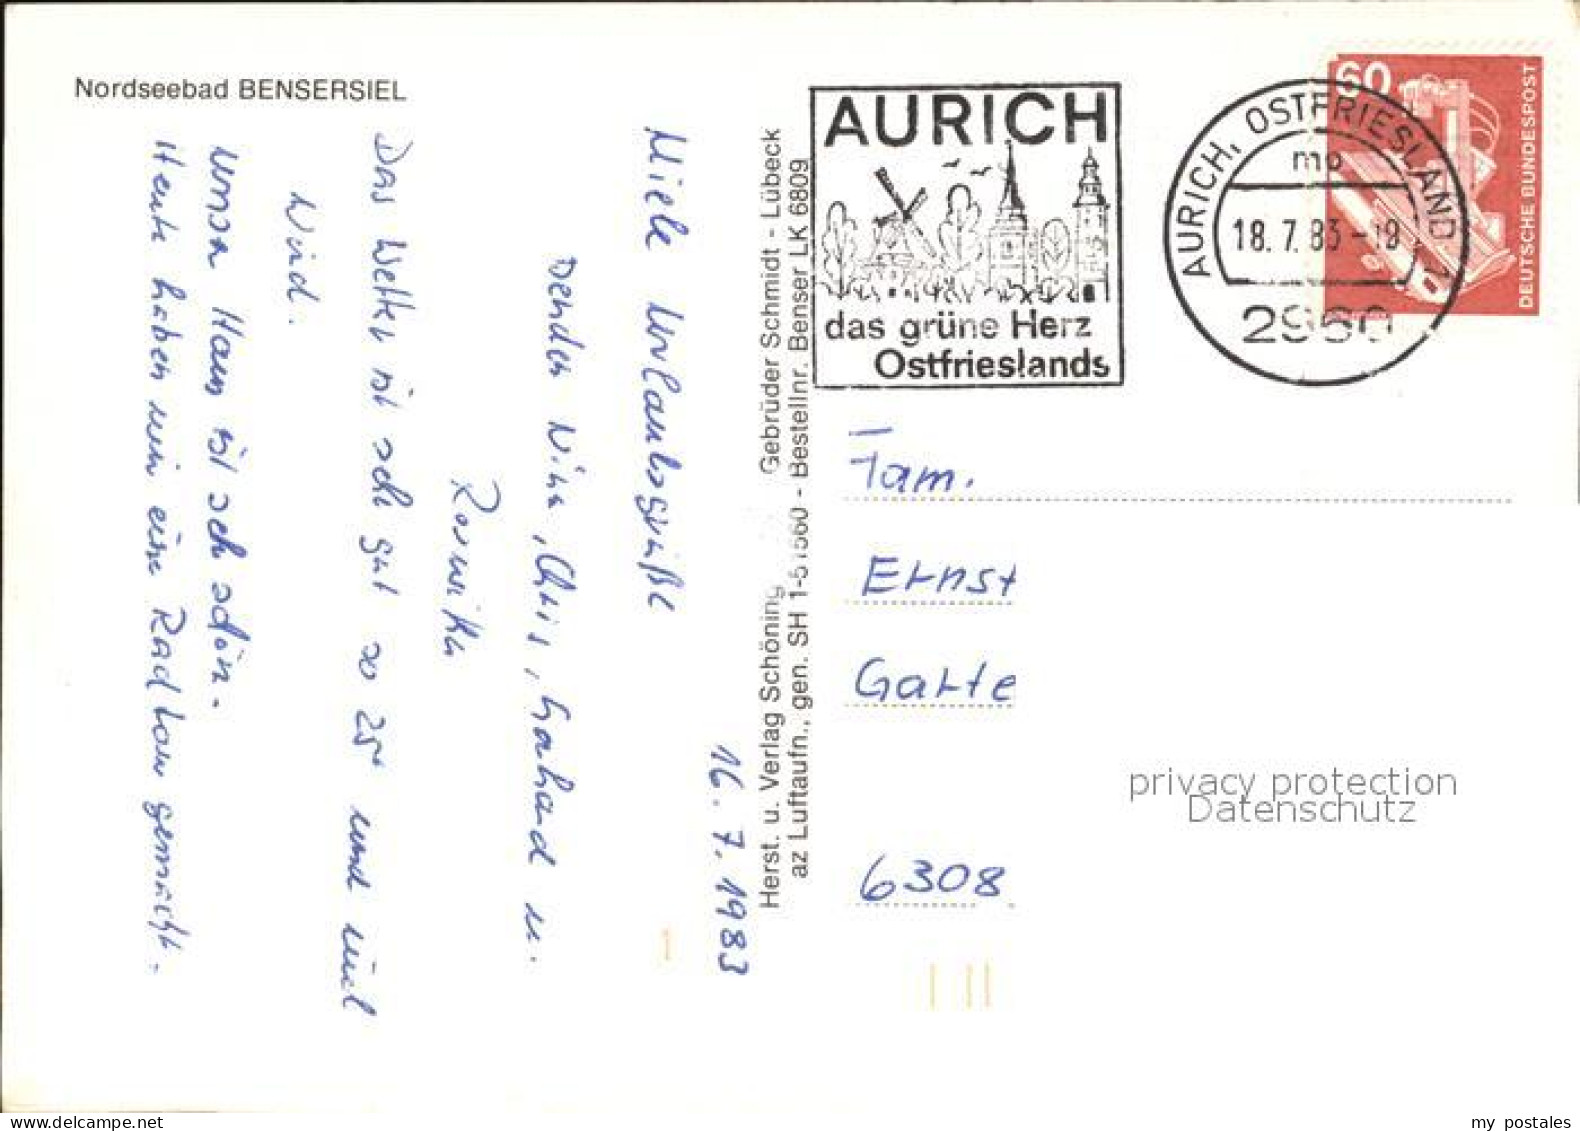 Nordseebad BENSERSIEL
16.7.1983
Viele Urlaubsgrüße
senden Nina, Chris, Gerhard u.
Roswitha
Das Wetter ist sehr gut so 25° und viel
Wind.
Unser Haus ist sehr schön.
Heute haben wir eine Radtour gemacht.
Herst. u. Verlag Schöning Gebrüder Schmidt - Lübeck
az Luftaufn., gen. SH 1-51560 - Bestellnr. Benser LK 6809
AURICH
das grüne Herz
Ostfrieslands
AURICH, OSTFRIESLAND 1
mb
18.7.83-19
2960
60
DEUTSCHE BUNDESPOST
Fam.
Ernst
Garte
6308
privacy protection
Datenschutz
my postales
www.delcampe.net